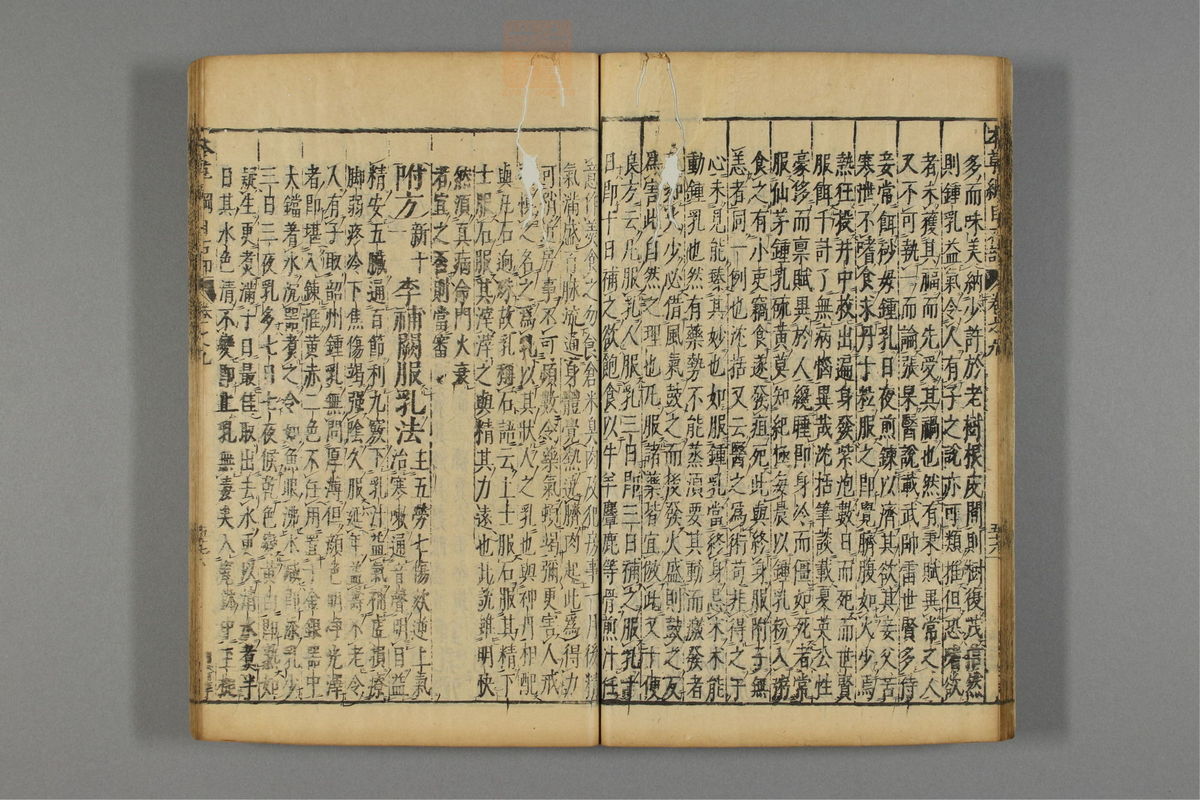 多而味美納少許於老樹根皮間則樹復茂信然
則鍾乳益氣令人有子之說亦可類推但恐嗜欲
者未獲其福而先受其禍也然有秉賦異常之人
又不可執一而論張杲醫說載武帥雷世賢多侍
妾常餌砂母鍾乳日夜煎鍊以濟其欲其妾父苦
寒世不嗜食求丹十粒服之即覺臍腹如火少焉
熱狂投井中救出遍身發紫泡數日而死而世賢
服餌千計了無病惱異哉沈括筆談載夏英公性
豪侈而稟賦異於人纔睡即身冷而僵如死者常
服仙茅鍾乳硫黃莫知紀極每晨以鍾乳粉入粥
食之有小吏竊食遂發疽死此與終身服附子無
恙者同一例也沈括又云醫之為術苟非得之于
心未見能臻其妙也如服鍾乳當終身忌朮朮能
動鍾乳也然有藥勢不能蒸須要其動而激發者
火少必借風氣鼓之而後發火盛則鼓之反
為害此自然之理也凡服諸藥皆宜倣此又十便
良方云凡服乳人服乳三日即三日補之服乳十
日即十日補之欲飽食以牛羊麞鹿等骨煎汁任
意作羮食之勿食倉米臭肉及犯房事一月後精
氣滿盛百脉流通身體覺熱遶臍肉起此為得力
可漸近房事不可頻數令藥氣頓竭彌更害人戒
之名之為乳以其狀人之乳也與神丹相配
與凡石迥殊故乳稱石語云上士服石服其精下
士服石服其滓滓之與精其力遠也此說雖明快
然須真病命門火衰
者宜之否則當審
附方 新十 李補闕服乳法 主五勞七傷欬逆上氣
治寒嗽通音聲明目益
精安五臟通百節利九竅下乳汁益氣補虛損療
脚弱疼冷下焦傷竭強陰久服延年益壽不老令
人有子取韶州鍾乳無問厚薄但顏色明淨光澤
者即堪入鍊惟黃赤二色不任用置于金銀器中
大鐺着水沉器煮之令如魚眼沸水減即添乳少
三日三夜乳多七日七夜候乾色變黃白即熟如
疑生更煮滿十日最佳取出去水更以清水煮半
日其水色清不變即止乳無毒矣入